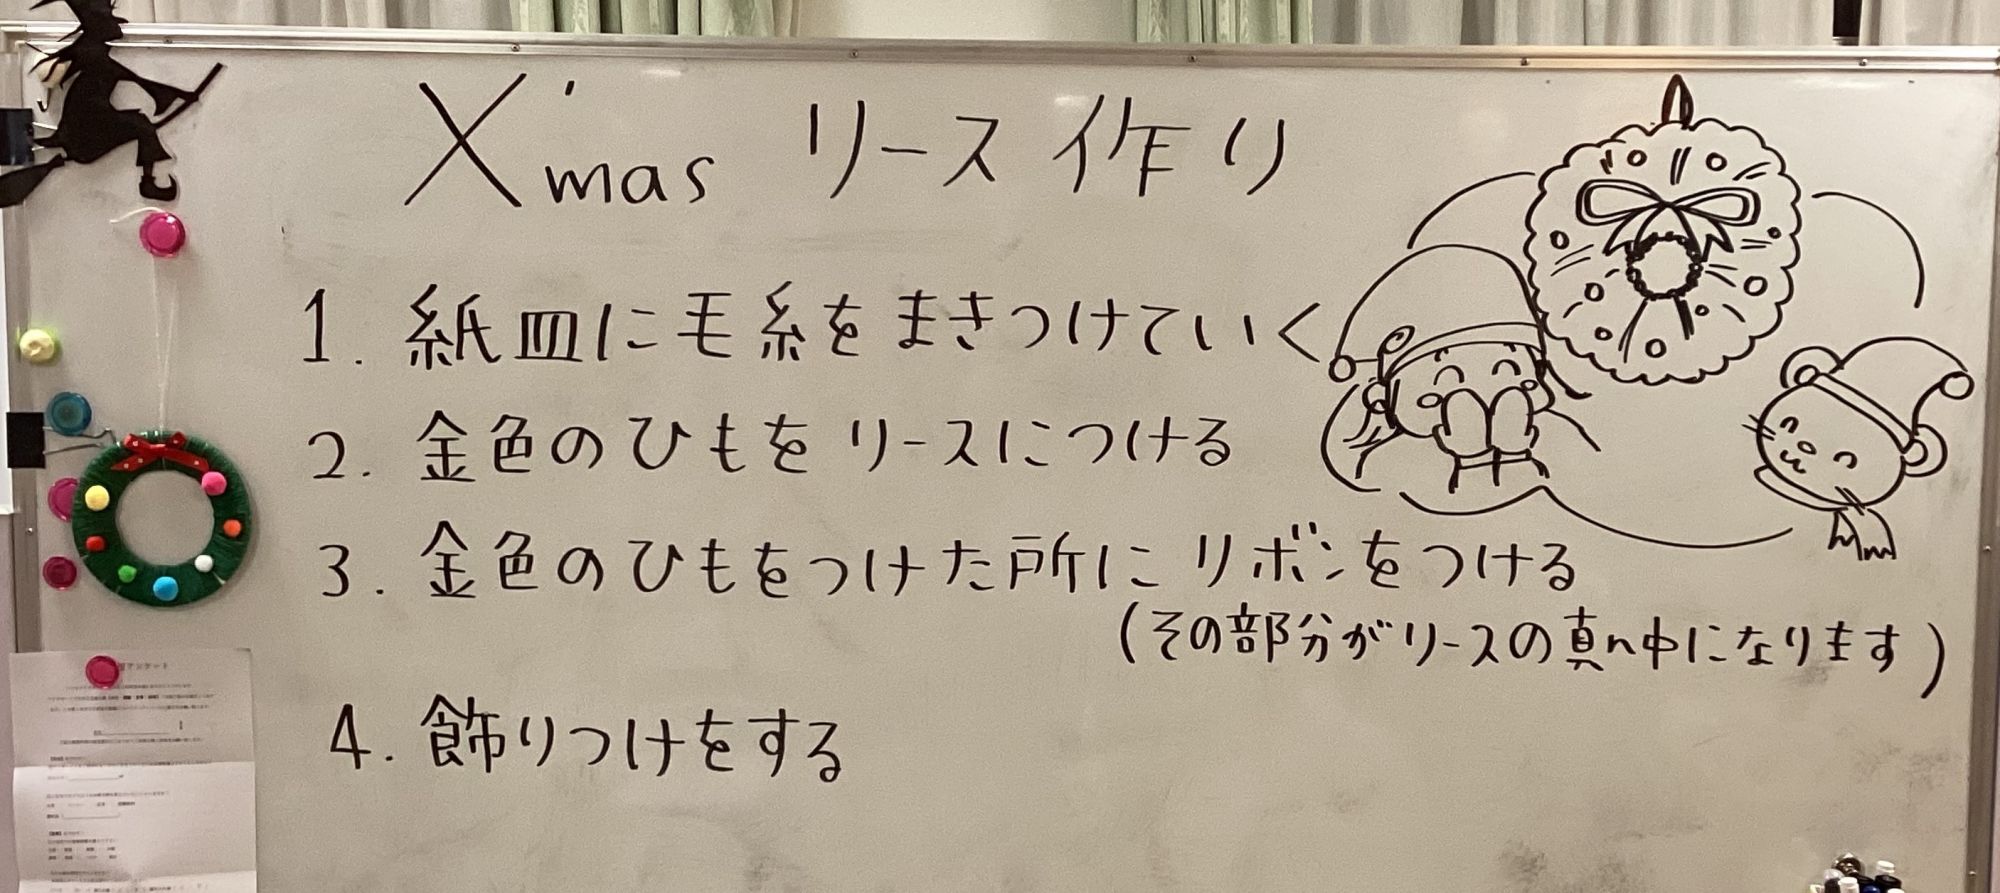 X'mas リース作り
1. 紙皿に毛糸をまきつけていく
2. 金色のひもをリースにつける
3. 金色のひもをつけた所にリボンをつける
(その部分がリースの真ん中になります)
4. 飾りつけをする
アンケート